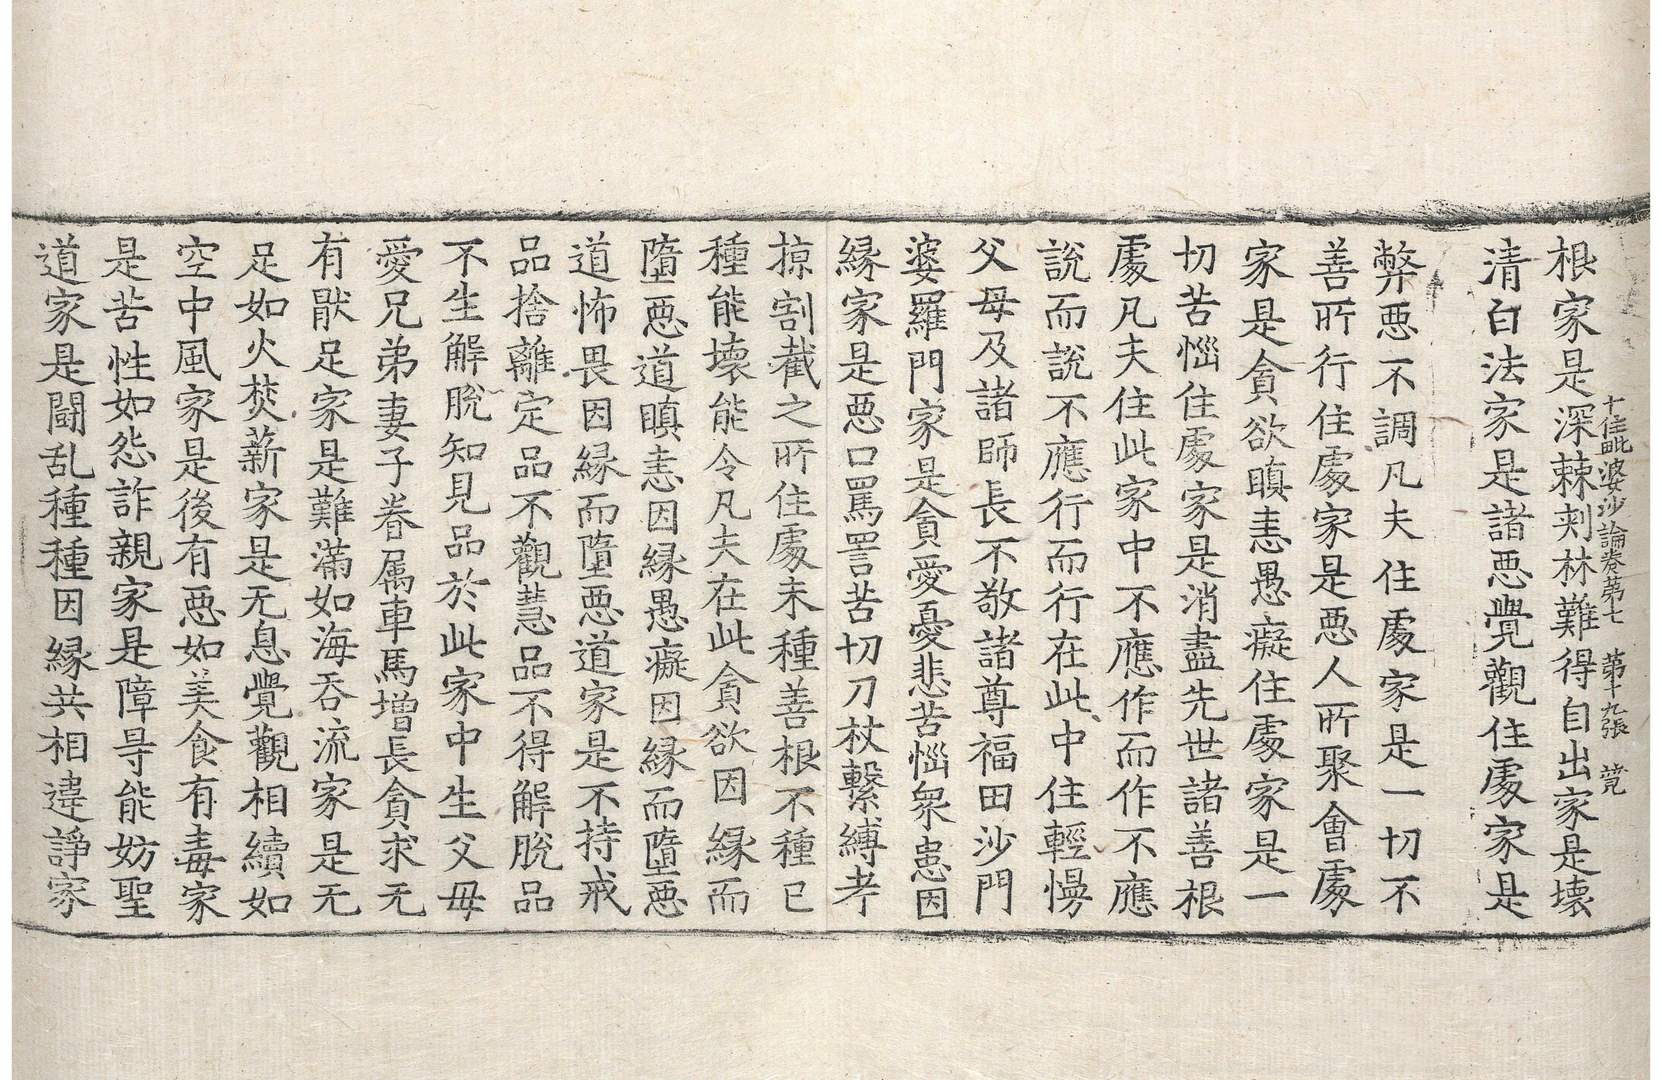 十住毗婆沙論卷第七　第十九張
根家是深棘刾林難得自出家是壊
清白法家是諸惡覺觀住處家是
弊惡不調凡夫住處家是一切不
善所行住處家是惡人所聚會處
家是貪欲瞋恚愚癡住處家是一
切苦惱住處家是消盡先世諸善根
處凡夫住此家中不應作而作不應
說而說不應行而行在此中住輕慢
父母及諸師長不敬諸尊福田沙門
婆羅門家是貪愛憂悲苦惱衆患因
縁家是惡口罵詈苦切刀杖繫縛考
掠割截之所住處未種善根不種已
種能壊能令凡夫在此貪欲因縁而
墮惡道瞋恚因縁愚癡因縁而墮惡
道怖畏因縁而墮惡道家是不持戒
品捨離定品不觀慧品不得解脫品
不生解脫知見品於此家中生父母
愛兄弟妻子眷属車馬增長貪求无
有猒足家是難滿如海吞流家是无
足如火焚薪家是无息覺觀相續如
空中風家是後有惡如美食有毒家
是苦性如怨詐親家是障㝵能妨聖
道家是鬪乱種種因縁共相違諍家